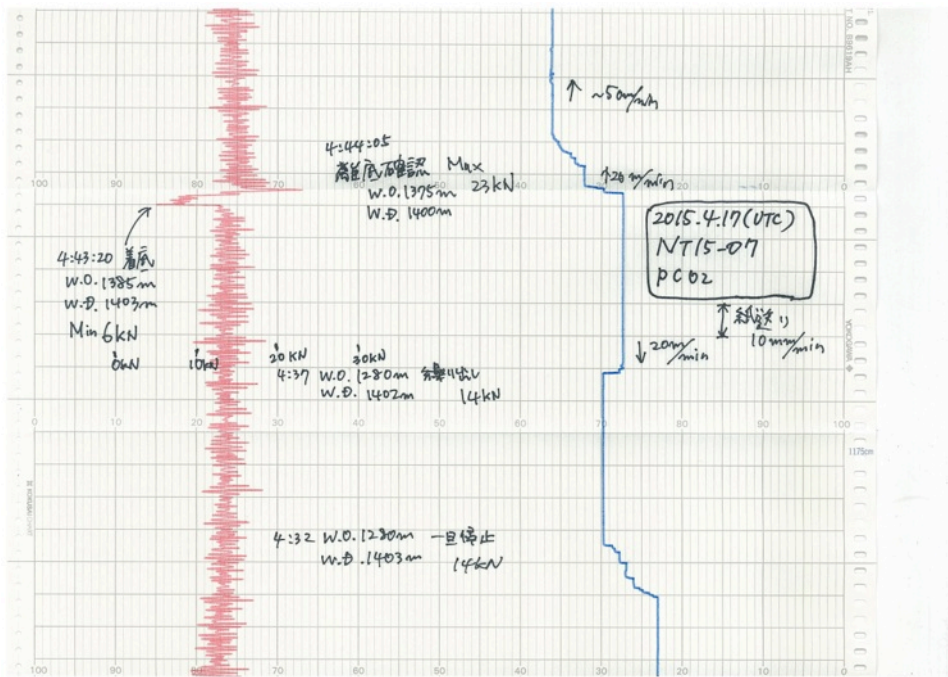 T. NO. B9619AH
↑ ~50m/min
4:44:05
離底確認 Max
W.O. 1375m 23kN
W.D. 1400m
↑20m/min
100 90 80 70 60 50 40 30 20 10 0
2015.4.17(UTC)
NT15-07
PC02
4:43:20 着底
W.O. 1385m
W.D. 1403m
Min 6kN
紙送り
10mm/min
↓20m/min
YOKOGAWA
0kN 10kN 20kN 30kN
4:37 W.O. 1280m 繰り出し
W.D. 1402m 14kN
0 10 20 30 40 50 60 70 80 90 100
1175cm
4:32 W.O. 1280m 一旦停止
W.D. 1403m 14kN
100 90 80 70 60 50 40 30 20 10 0